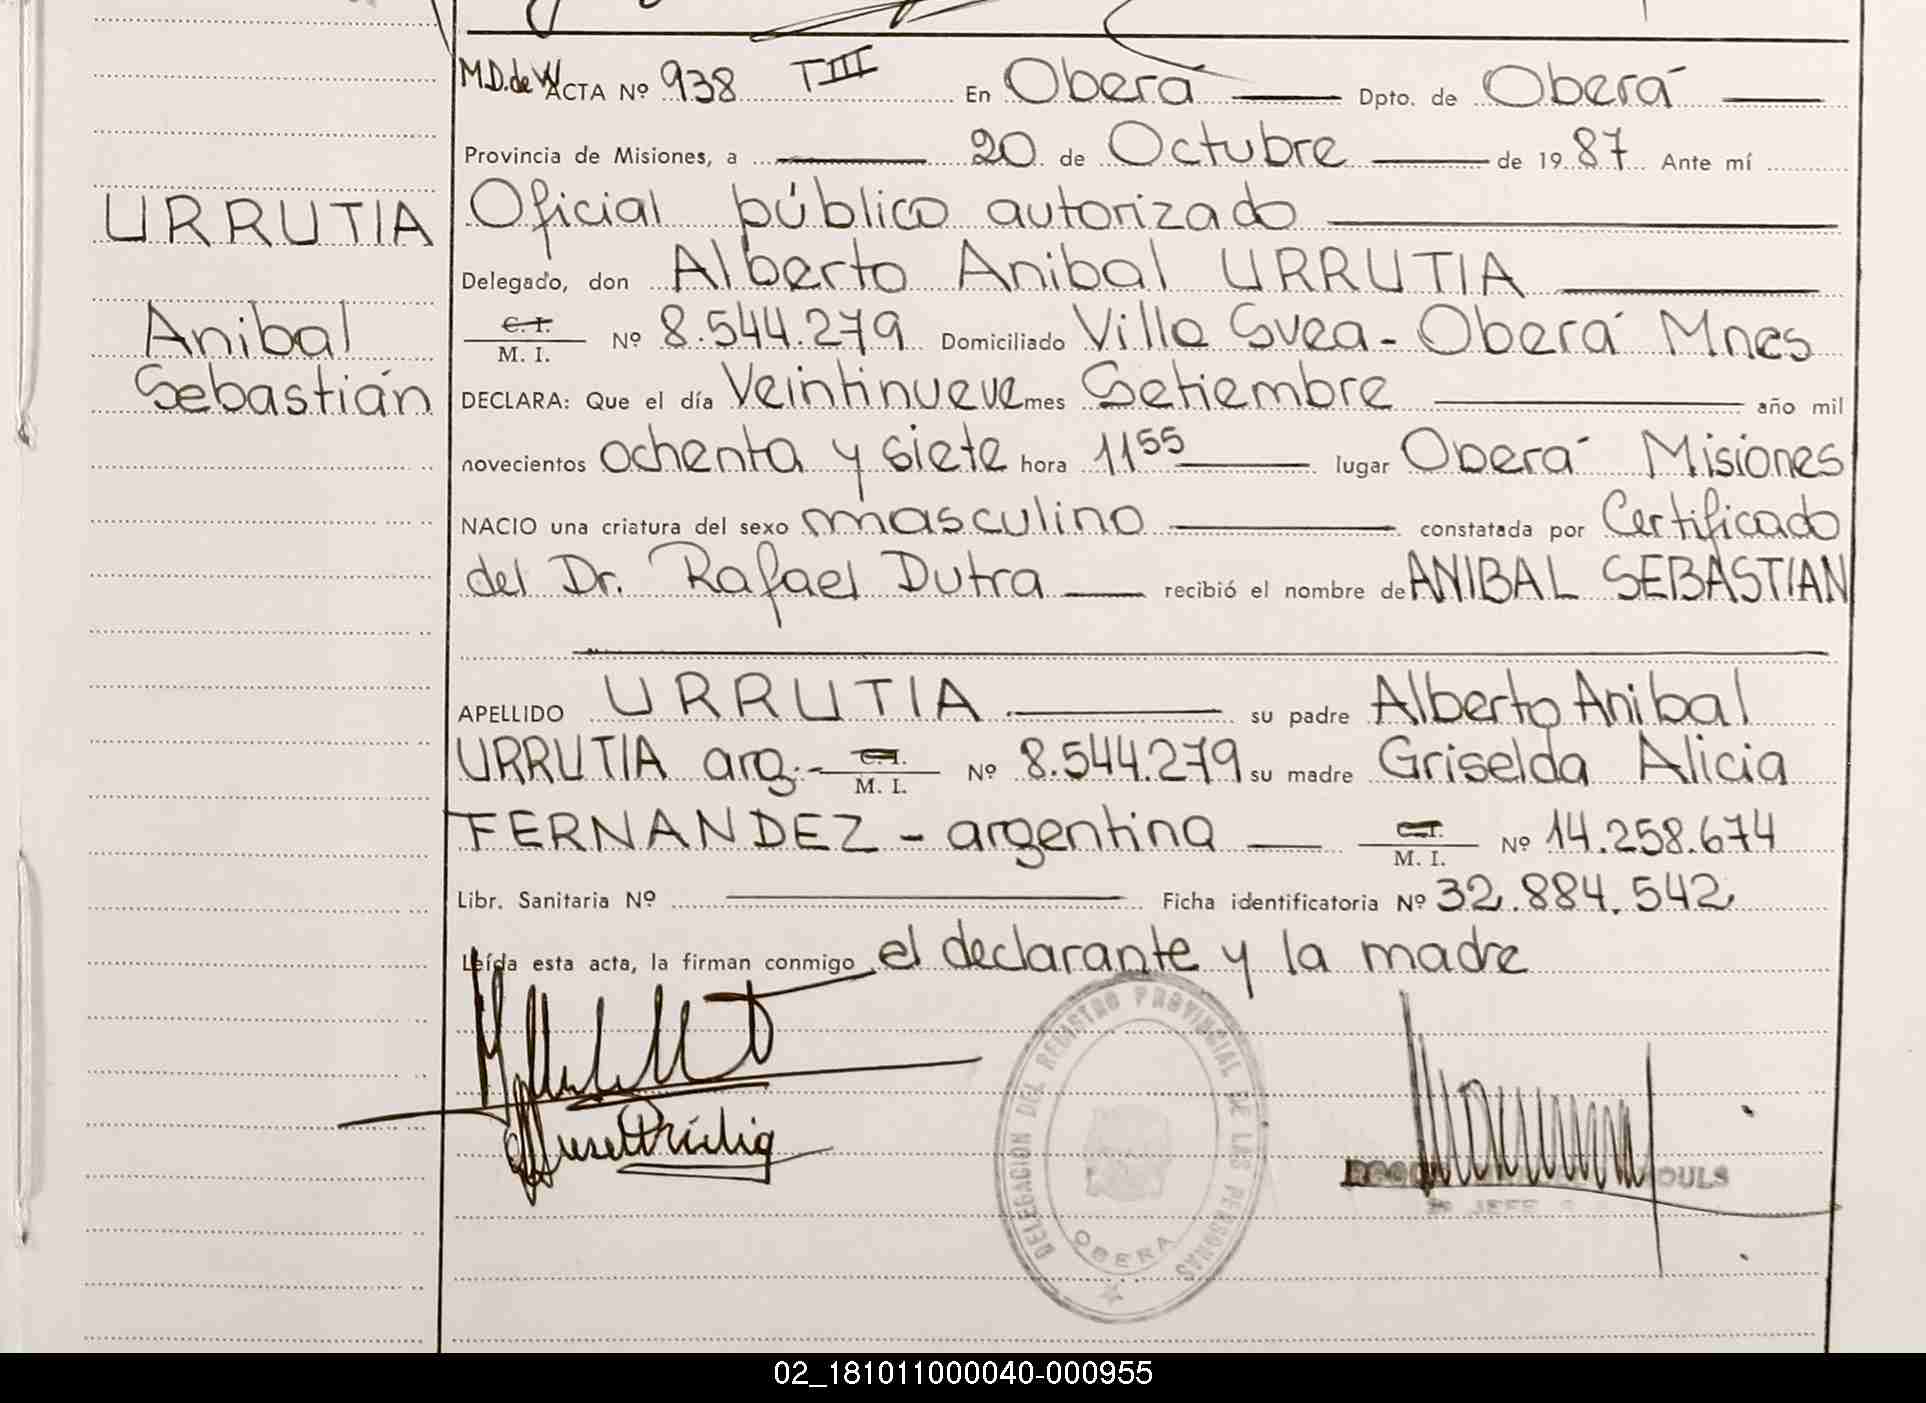 M.D. de W ACTA Nº 938 TIII En Oberá Dpto. de Oberá
Provincia de Misiones, a 20 de Octubre de 1987 Ante mí
URRUTIA
Oficial público autorizado
Delegado, don Alberto Anibal URRUTIA
Anibal
C. I. M. I. Nº 8.544.279 Domiciliado Villa Svea - Oberá Mnes
Sebastián
DECLARA: Que el día Veintinueve mes Setiembre año mil
novecientos ochenta y siete hora 11 55 lugar Oberá Misiones
NACIO una criatura del sexo masculino constatada por Certificado
del Dr. Rafael Dutra recibió el nombre de ANIBAL SEBASTIAN
APELLIDO URRUTIA su padre Alberto Anibal
URRUTIA arg.- C. I. M. I. Nº 8.544.279 su madre Griselda Alicia
FERNANDEZ - argentina C. I. M. I. Nº 14.258.674
Libr. Sanitaria Nº Ficha identificatoria Nº 32.884.542
Leída esta acta, la firman conmigo el declarante y la madre
DELEGACION DEL REGISTRO PROVINCIAL DE LAS PERSONAS
OBERA
JEFE
02_181011000040-000955